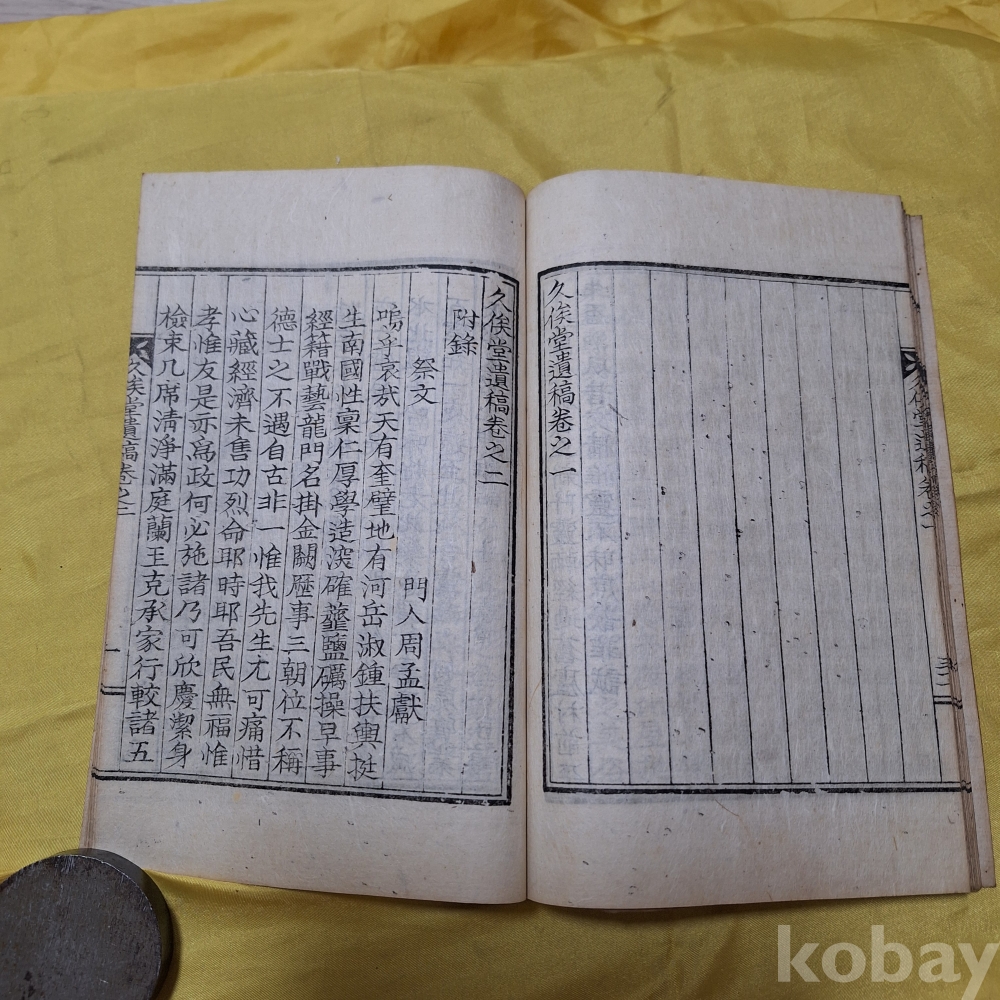 久俟堂遺稿卷之一
久俟堂遺稿卷之二
附錄
祭文
門人周孟獻
嗚乎哀哉天有奎璧地有河岳淑鍾扶輿挺
生南國性稟仁厚學造深確虀鹽礪操早事
經籍戰藝龍門名掛金闕歷事三朝位不稱
德士之不遇自古非一惟我先生尤可痛惜
心藏經濟未售功烈命耶時耶吾民無福惟
孝惟友是亦爲政何必施諸乃可欣慶潔身
檢束几席淸淨滿庭蘭玉克承家行較諸五
久俟堂遺稿卷之二
一
久俟堂遺稿卷之一
kobay